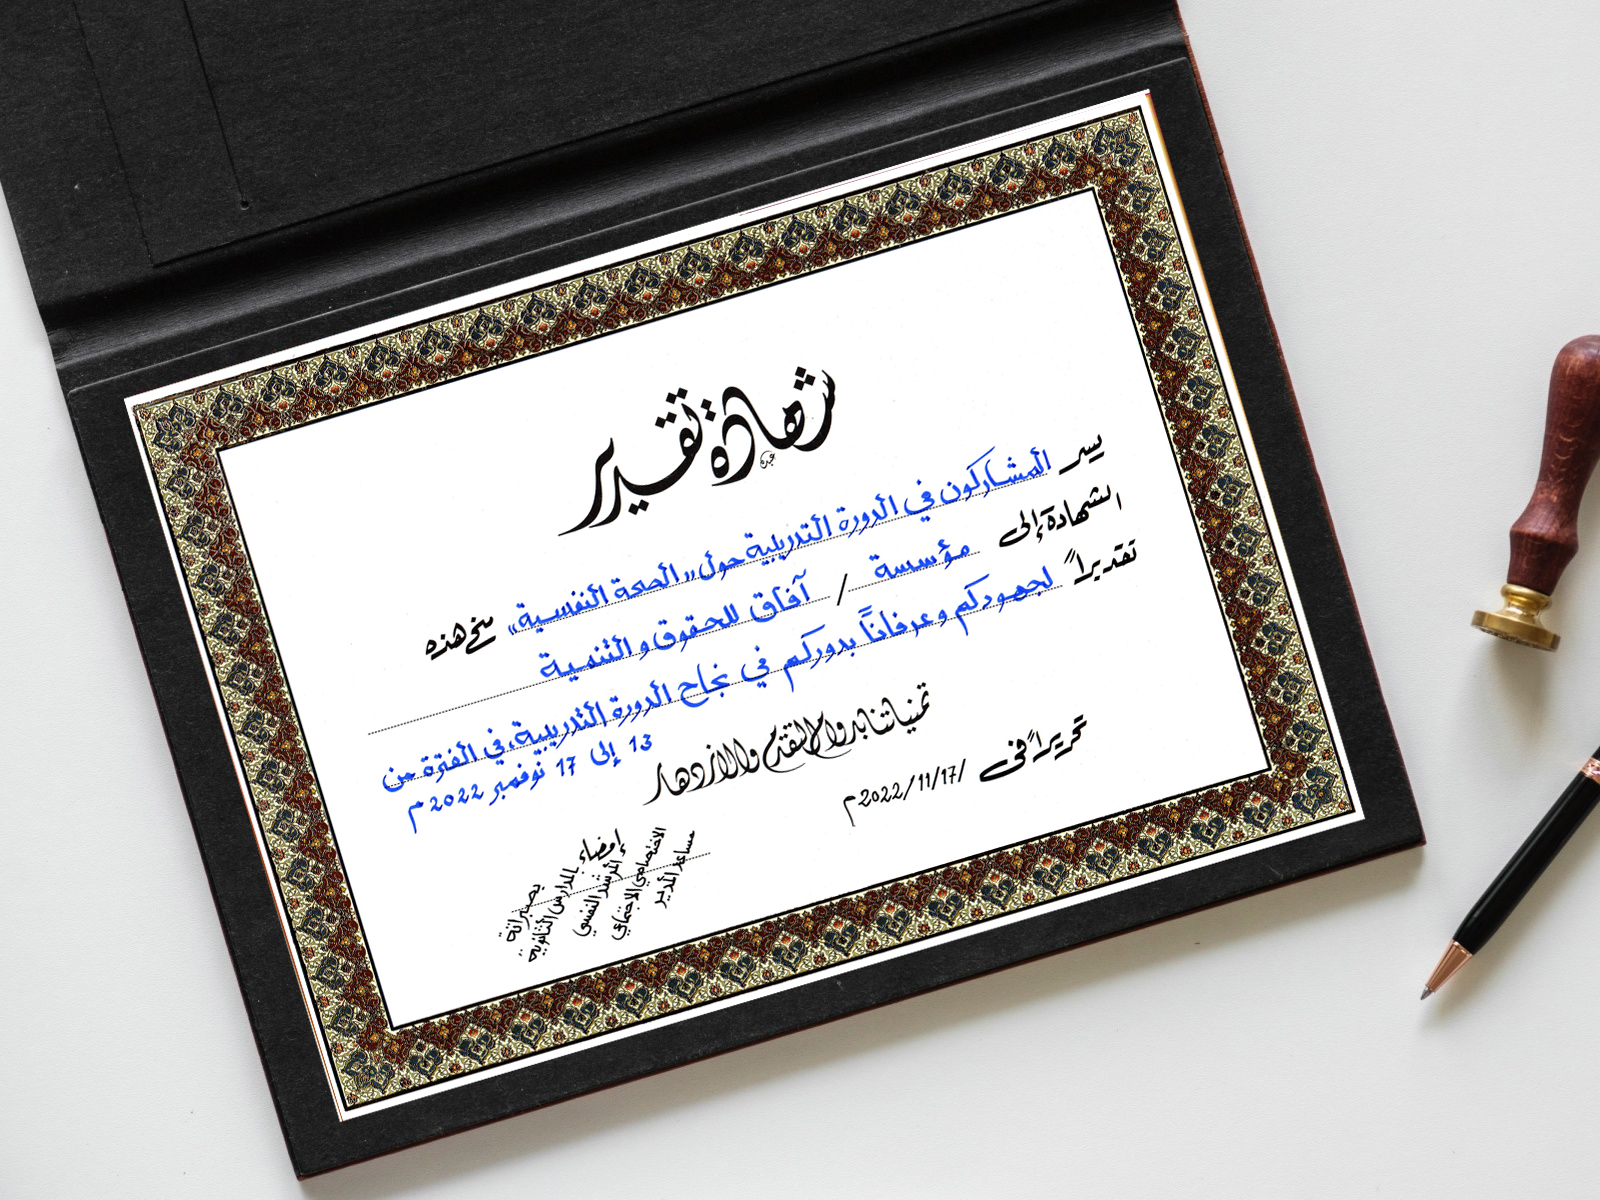 شهادة تقدير
يسر المشاركون في الدورة التدريبية حول "الصحة النفسية" منح هذه
الشهادة إلى مؤسسة / آفاق للحقوق والتنمية
تقديراً لجهودكم وعرفانًا بدوركم في نجاح الدورة التدريبية، في الفترة من
13 إلى 17 نوفمبر 2022م
تمنياتنا بدوام التقدم والازدهار
تحريراً في 17/11/2022م
إمضاء
مساعد المدير
الاختصاصي الاجتماعي
المرشد النفسي
بالمدارس الثانوية
بصبراتة